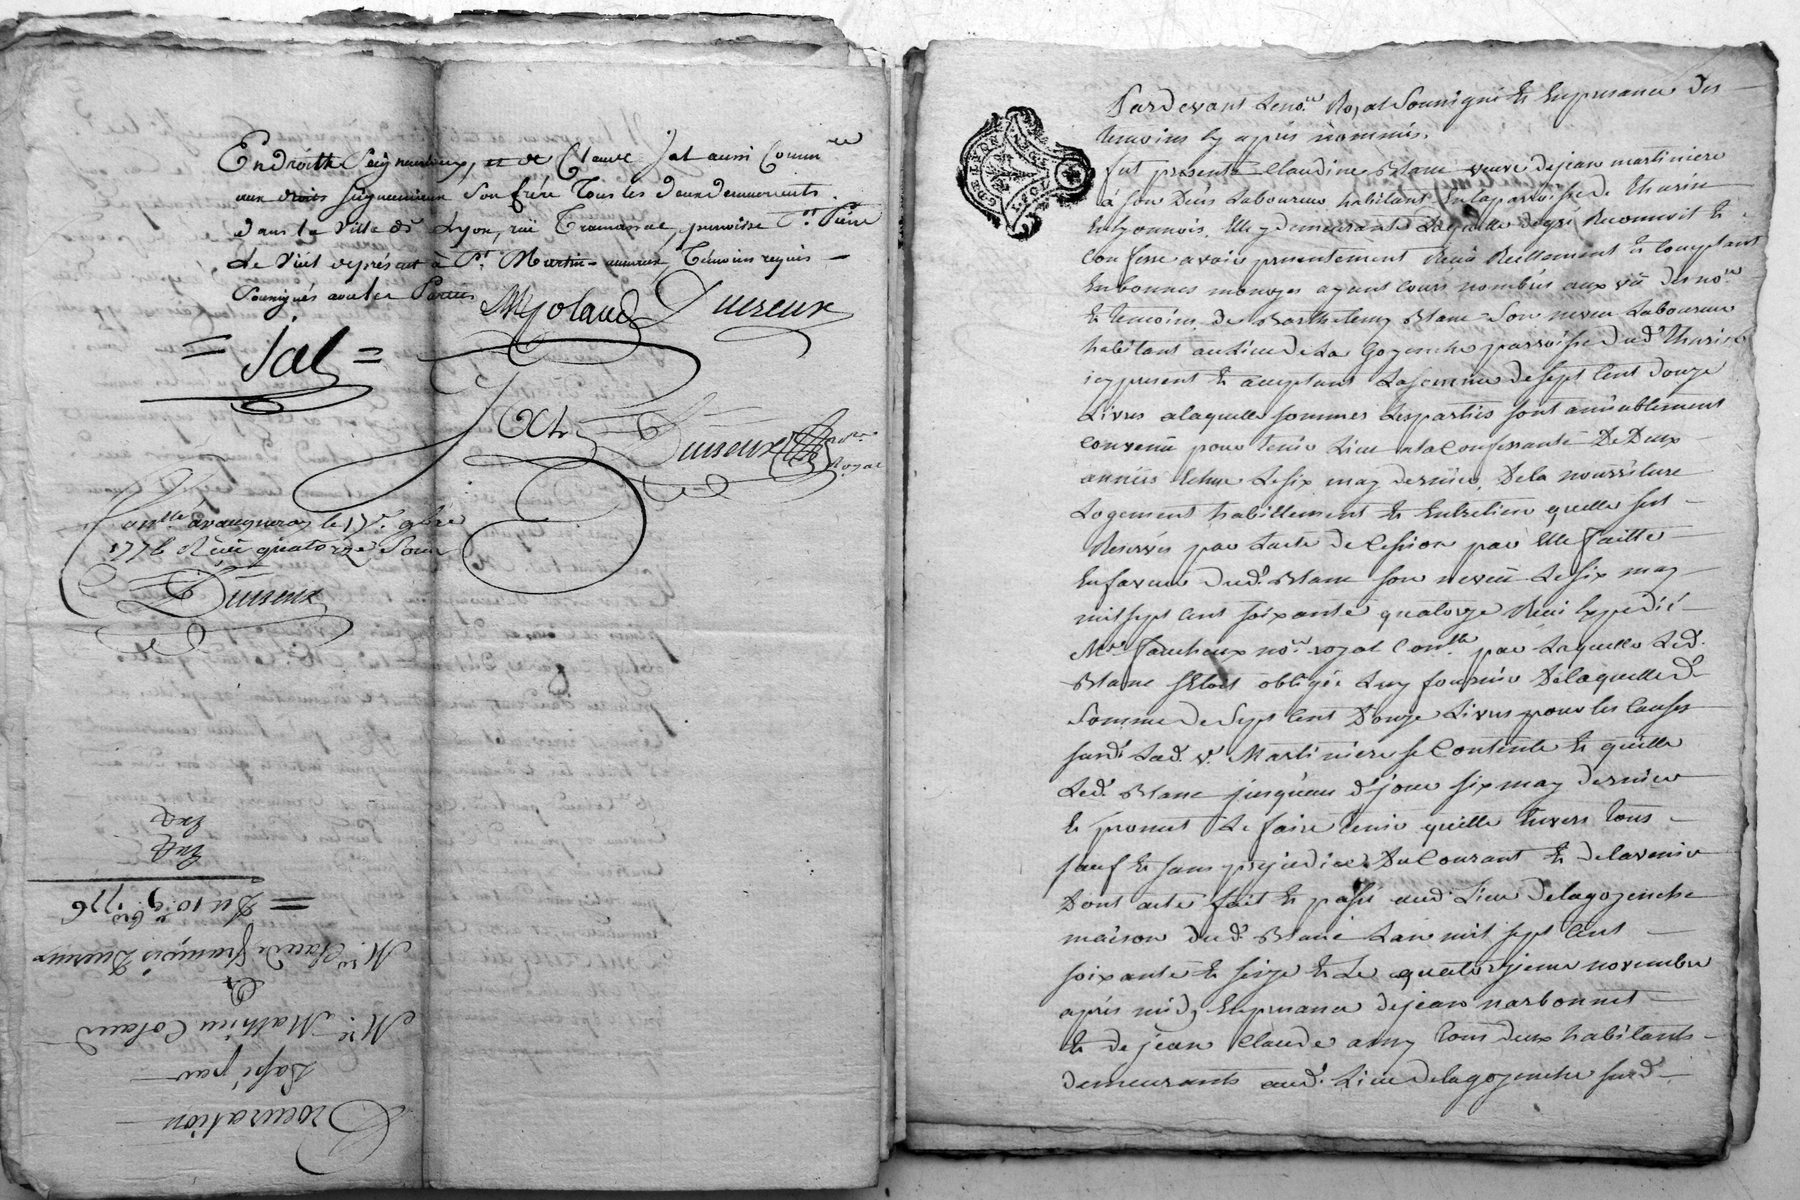 En droitte Seigneuriaux, et de Claude Jal aussi Comm.re
aux droits seigneuriaux son frère Tous les deux demeurants
dans la Ville de Lyon, rüe Tramassac, paroisse St. Pierre
Le Vieil
Témoins requis
Soussignés avec les Parties
MColaud Duereux
= Jal =
Jal
Duereux
Royal
le 17e 9bre
1776 Reçu quatorze Sous
Duereux
Procuration
Passé par
Mre. Mathieu Colaud
à
Mre Claude François Duereux
= Du 10 9bre 1776
Exp
Exp
GEN. DE LYON
Pardevant Le no.re Royal Soussigné Et En presance des
temoins Cy après nommés.
fut presente Claudine Blanc veuve de jean martiniere
à son Deüs Laboureur habitant En la parroisse de Thurin
En lyonnois, Elle y demeurante Laquelle de gré Reconnoit Et
Confesse avoir presentement Reçu Reellement Et Comptant
En bonnes monoyes ayant Cours nombrés aux vû des no.re
Et temoins de Barthelemy Blanc Son neveu Laboureur
habitant au Lieu de La Goyenche parroisse dud.t Thurin
icy present Et aceptant La somme de Sept Cent Douze
Livres a laquelle somme Les parties sont amiablement
Convenü pour tenir Lieu a la Confessante De Deux
années Echue Le six may dernier, De la nourriture
Logement habillement Et Entretien quelle sest
Reservés par Lacte de Cession par Elle faitte
En faveur dud.t Blanc son neveü Le six may
mil sept Cent soixante quatorze Recü Expedié
Me. faucheux no.re royal par Laquelle Led.t
Blanc sEtoit obligée Luy fournir De laquelle d.
Somme de Sept Cent Douze Livres pour les Causes
susd. Lad. v.e Martiniere se Contente Et quitte
Led.t Blanc jusqueau d. jour six may dernier
Et promet Le faire tenir quitte Envers tous
sauf Et sans prejudice Du Courant Et de lavenir
Dont acte fait Et passé aud. Lieu De lagoyenche
maison dud.t Blanc Lan mil sept Cent
soixante Et seize Et Le quatorzieme novembre
après midy En presance de jean narbonnet
Et de jean Claude amy tous deux habitants
demeurants aud.t Lieu de lagoyenche susd.